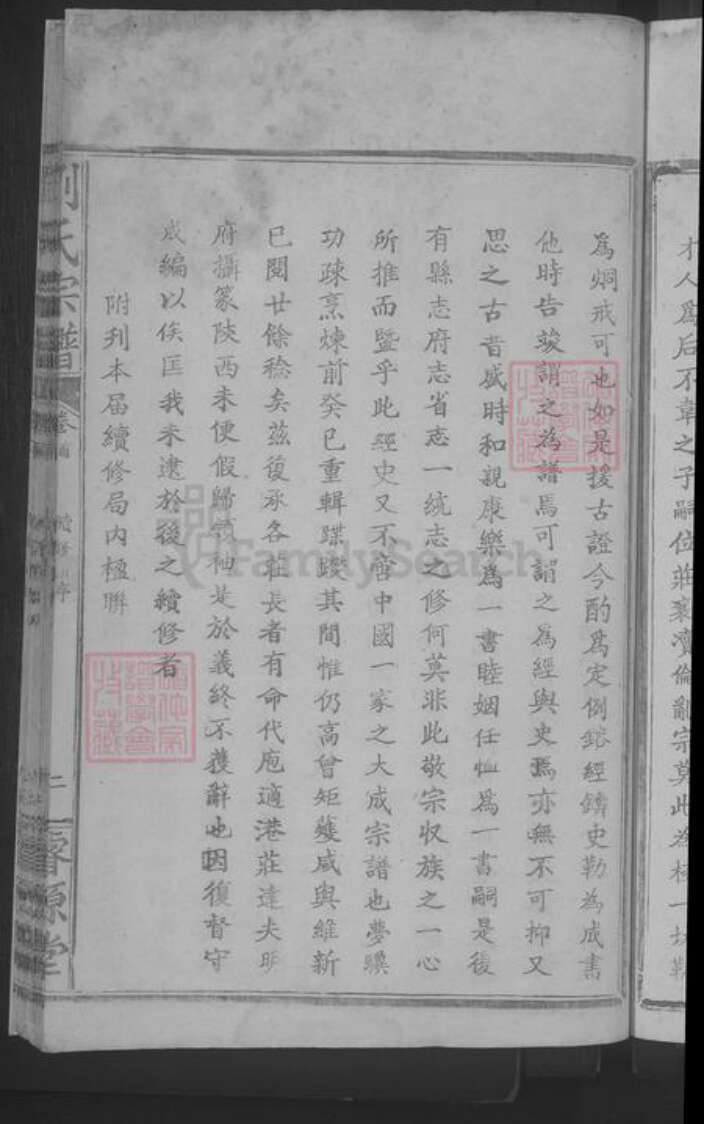 才人為后不韋之子嗣位莊襄瀆倫亂宗莫此為極一切
為炯戒可也如是援古證今酌為定例鎔經鑄史勒為成書
他時告竣謂之為譜焉可謂之為經與史焉亦無不可抑又
思之古昔盛時和親康樂為一書睦姻任恤為一書嗣是後
有縣志府志省志一統志之修何莫非此敬宗收族之一心
所推而暨乎此經史又不啻中國一家之大成宗譜也夢驥
功疎烹煉前癸巳重輯蹀躞其間惟仍高曾矩矱咸與維新
已閱廿餘稔矣茲復承各莊長者有命代庖適港莊達夫明
府攝篆陝西未便假歸領袖是於義終不獲辭也因復督守
成編以俟匡我未逮於後之續修者
附刊本届續修局内楹聯
劉氏宗譜
卷首
續修序
二
FamilySearch